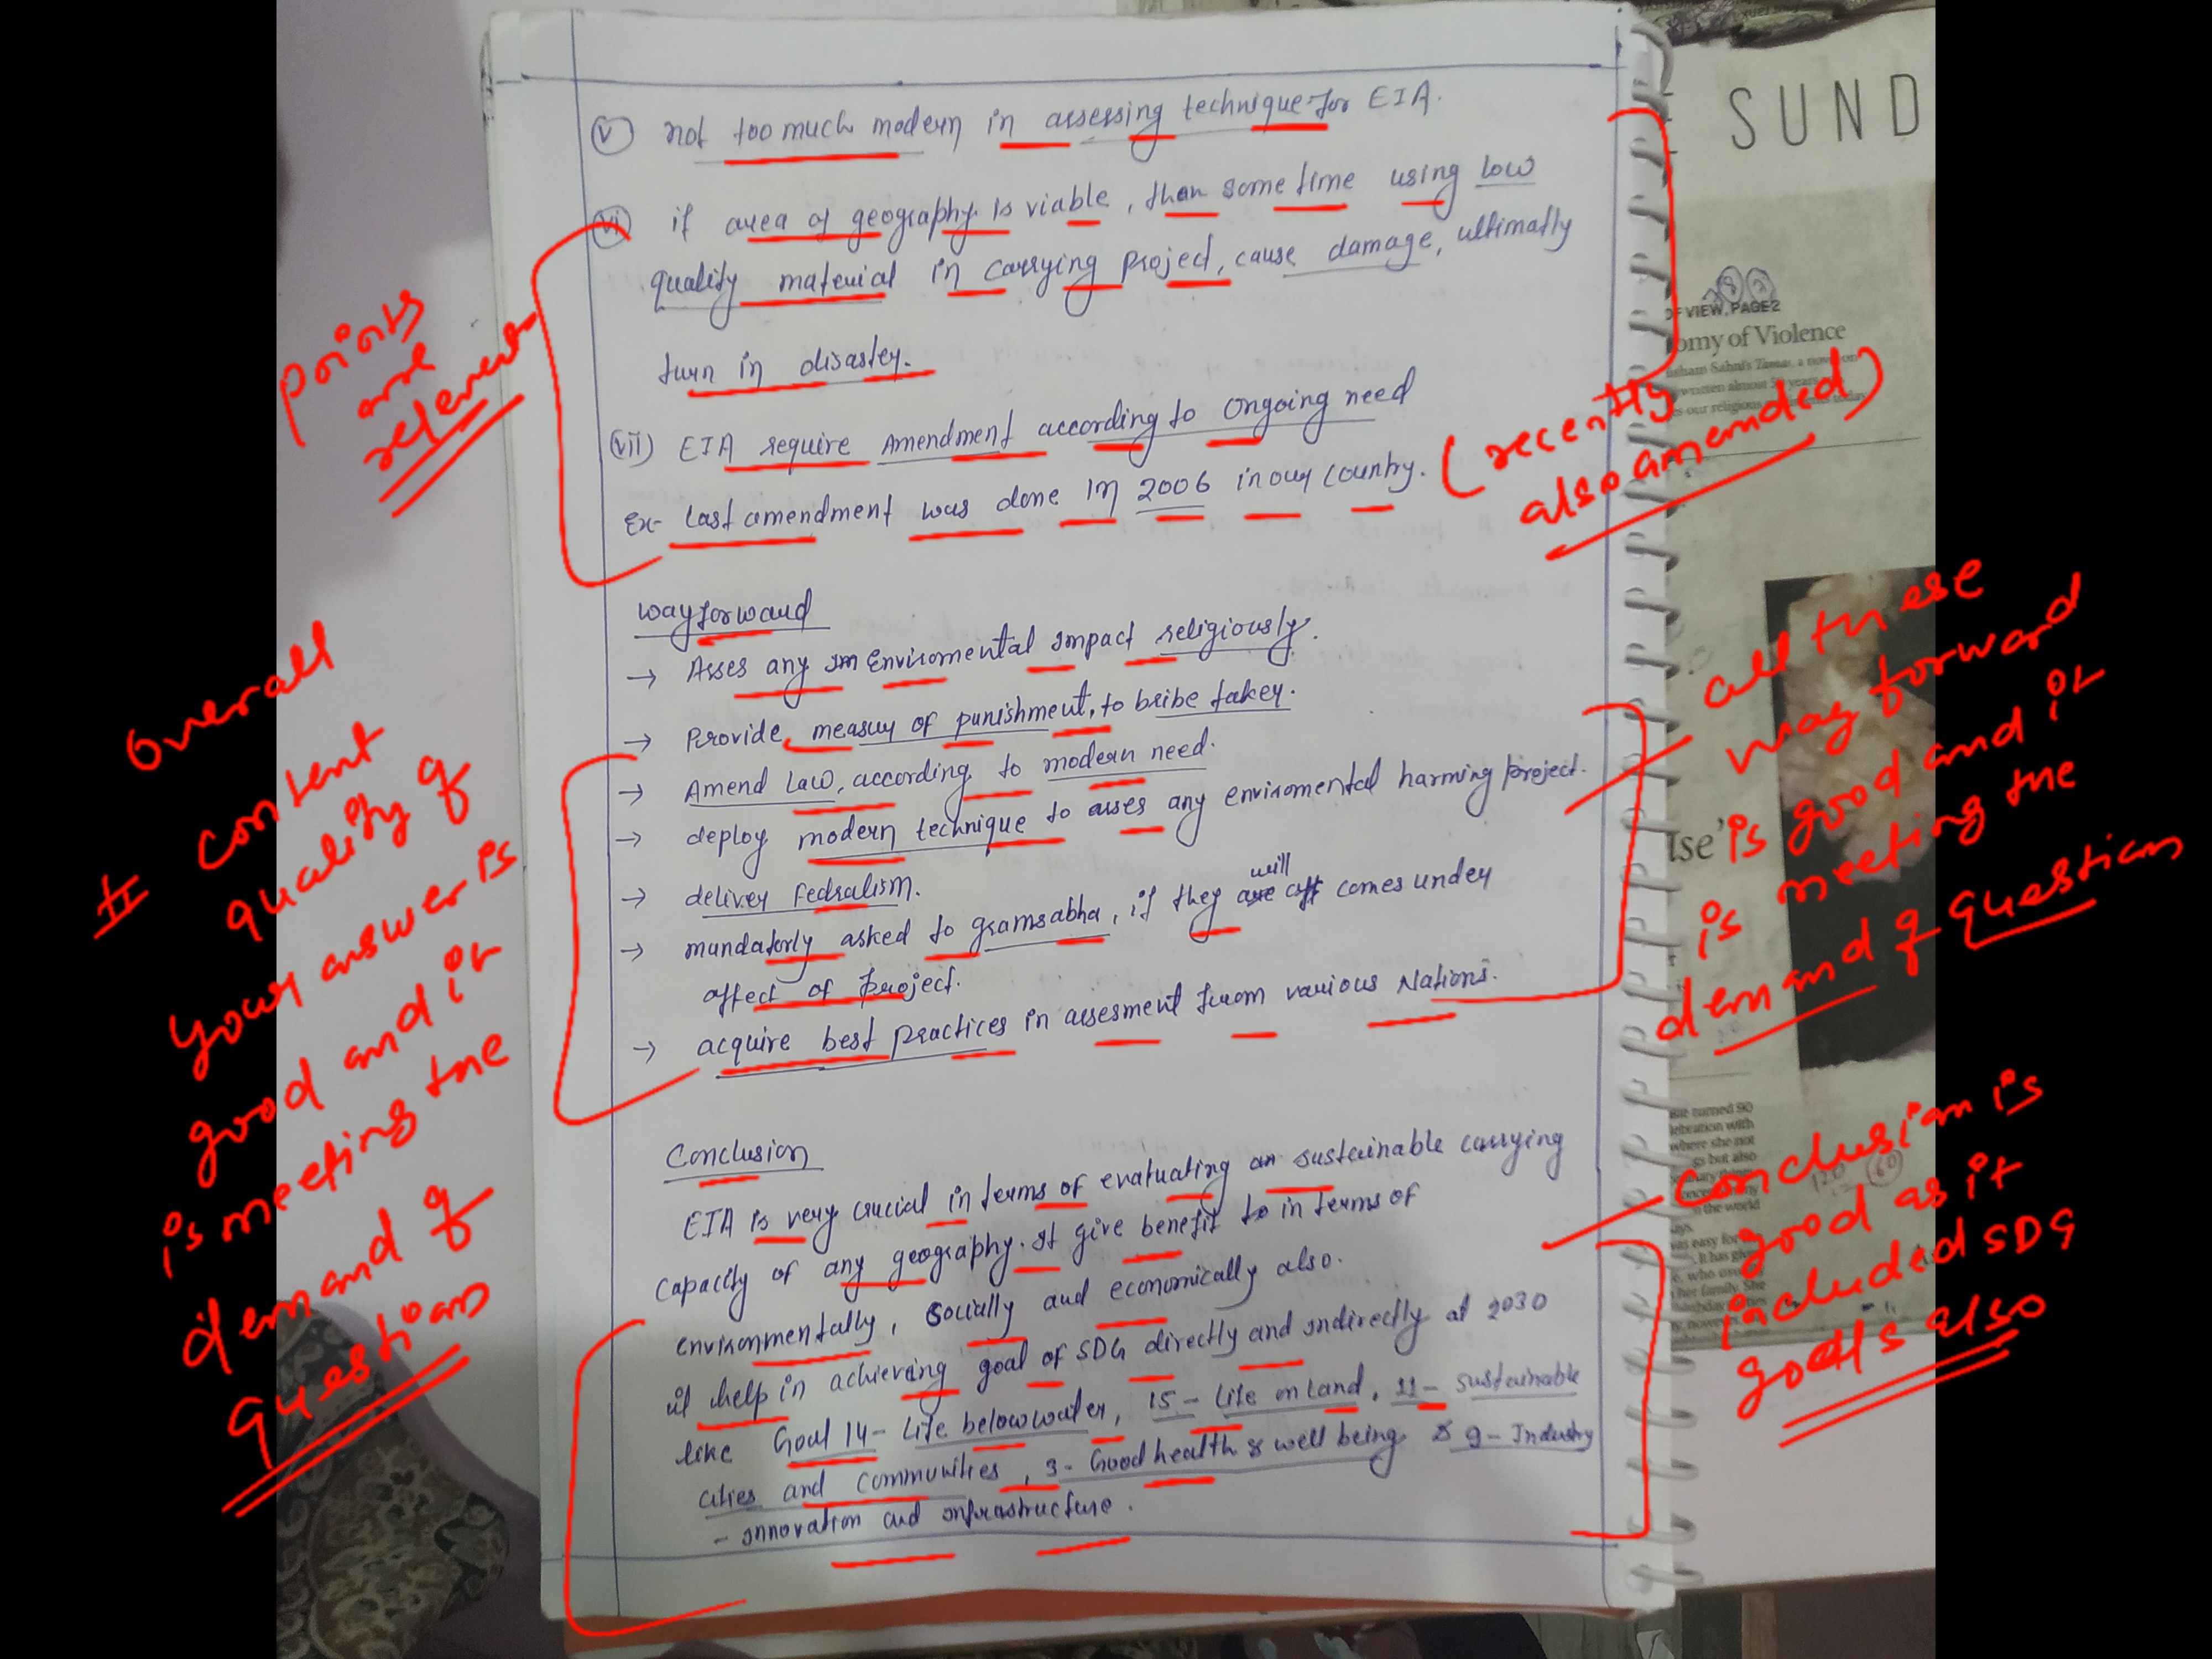 (v) not too much modern in assessing technique for EIA.
(vi) if area of geography is viable, than some time using low
quality material in carrying project, cause damage, ultimatly
turn in disaster.
(vii) EIA require Amendment according to ongoing need
Ex- Last amendment was done in 2006 in our country.
(recently
also amended)
points
are
relevant
way forward
→ Asses any Enviromental impact religiously.
→ Provide measur of punishment, to bribe taker.
→ Amend Law, according to modern need.
→ deploy modern technique to asses any enviromental harming project.
→ deliver Fedralism.
→ mandatorly asked to gramsabha, if they will comes under
affect of project.
→ acquire best practices in assesment from various Nations.
all these
way forward
is good and it
is meeting the
demand of question
Overall
# content
quality of
your answer is
good and it
is meeting the
demand of
question
Conclusion
EIA is very crucial in terms of evaluating an sustainable carrying
capacity of any geography. It give benefit to in terms of
environmentally, socially and economically also.
it help in achieving goal of SDG directly and indirectly at 2030
like Goal 14- Life below water, 15- Life on Land, 11- sustainable
cities and communities, 3- Good health & well being & 9- Industry
- innovation and infrastructure.
conclusion is
good as it
included SDG
goals also
SUND
OF VIEW, PAGE 2
omy of Violence
lse'
120
60